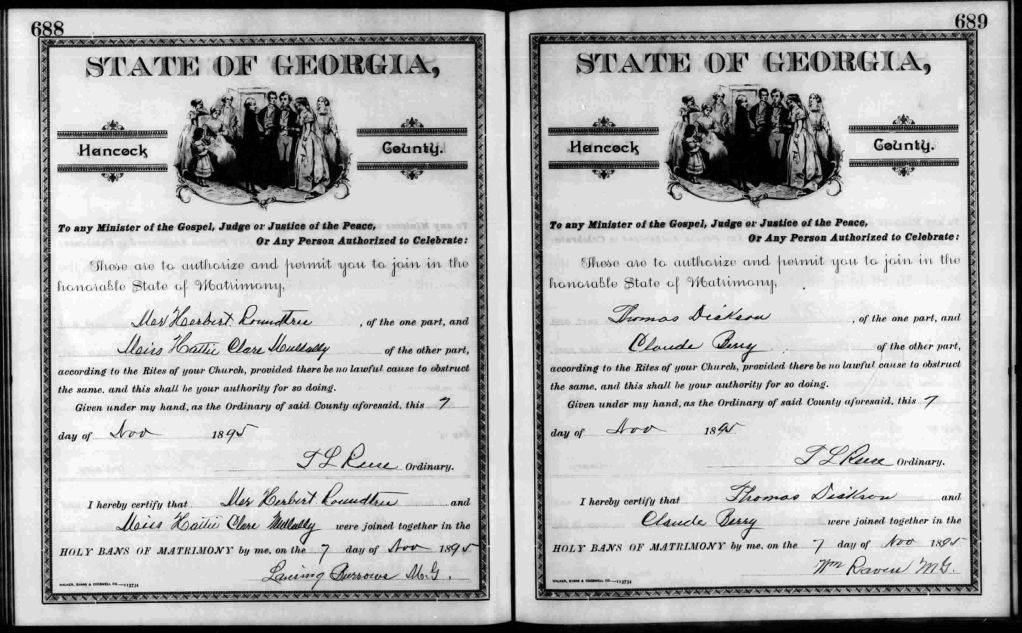 688
STATE OF GEORGIA,
Hancock County.
To any Minister of the Gospel, Judge or Justice of the Peace,
Or Any Person Authorized to Celebrate:
These are to authorize and permit you to join in the
honorable State of Matrimony,
Mr Herbert Roundtree , of the one part, and
Miss Hattie Clare Mullally of the other part,
according to the Rites of your Church, provided there be no lawful cause to obstruct
the same, and this shall be your authority for so doing.
Given under my hand, as the Ordinary of said County aforesaid, this 7
day of Nov 1895
T L Reese Ordinary.
I hereby certify that Mr Herbert Roundtree and
Miss Hattie Clare Mullally were joined together in the
HOLY BANS OF MATRIMONY by me, on the 7 day of Nov 1895
Lansing Burrows M.G.
WALKER, EVANS & COGSWELL CO.
689
STATE OF GEORGIA,
Hancock County.
To any Minister of the Gospel, Judge or Justice of the Peace,
Or Any Person Authorized to Celebrate:
These are to authorize and permit you to join in the
honorable State of Matrimony,
Thomas Dickson , of the one part, and
Claude Berry of the other part,
according to the Rites of your Church, provided there be no lawful cause to obstruct
the same, and this shall be your authority for so doing.
Given under my hand, as the Ordinary of said County aforesaid, this 7
day of Nov 1895
T L Reese Ordinary.
I hereby certify that Thomas Dickson and
Claude Berry were joined together in the
HOLY BANS OF MATRIMONY by me, on the 7 day of Nov 1895
Wm Raven M.G.
WALKER, EVANS & COGSWELL CO.